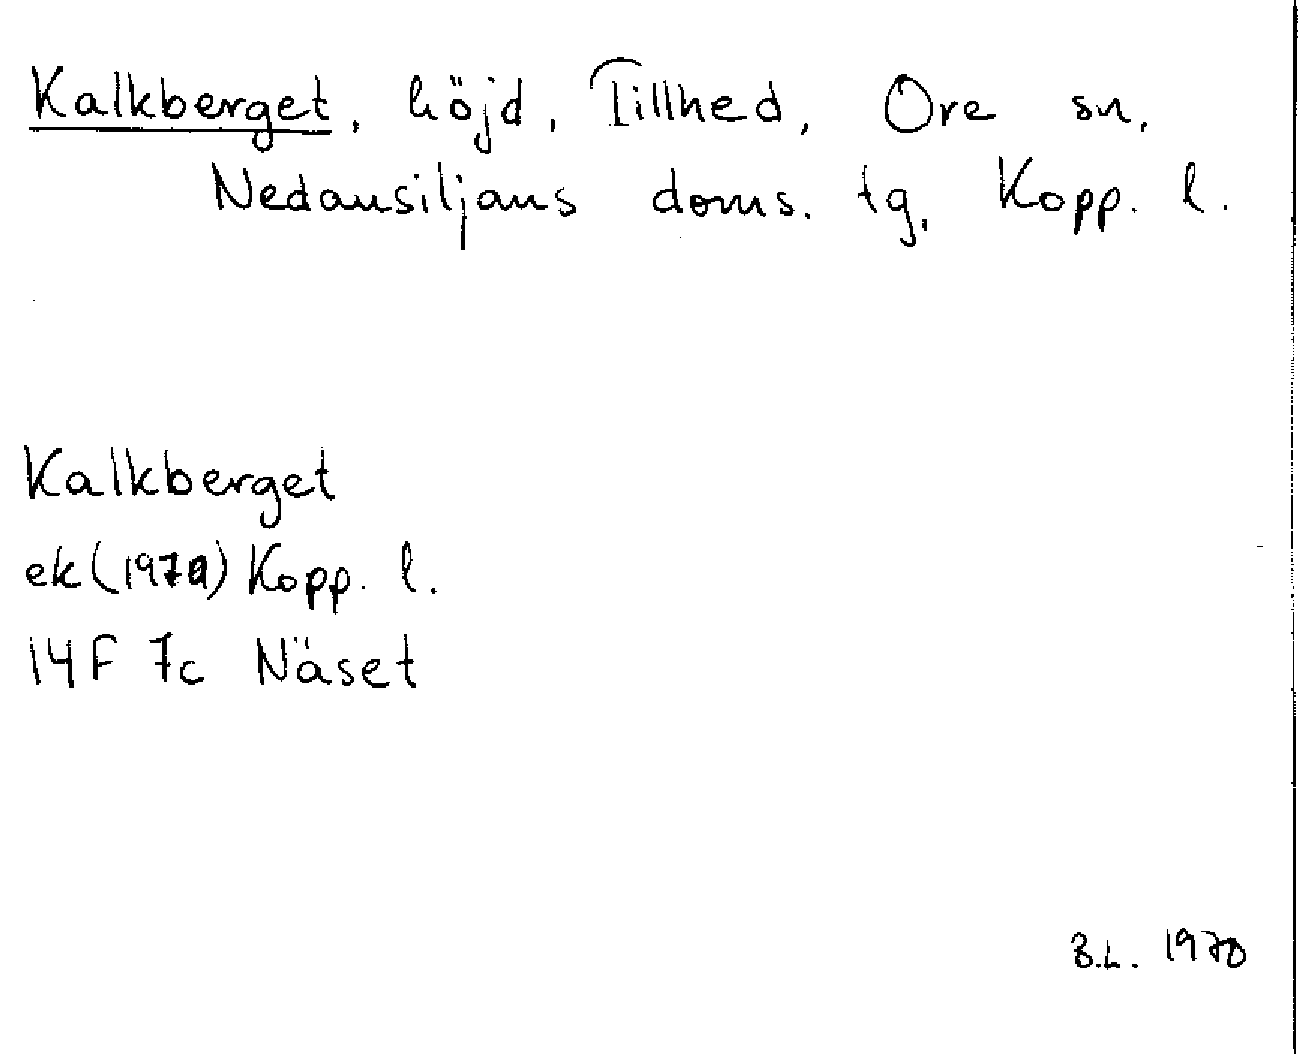 Kalkberget, höjd, Tillhed, Ore sn,
Nedansiljans doms. tg, Kopp. l.
Kalkberget
ek (1970) Kopp. l.
14F 7c Näset
B.L. 1970